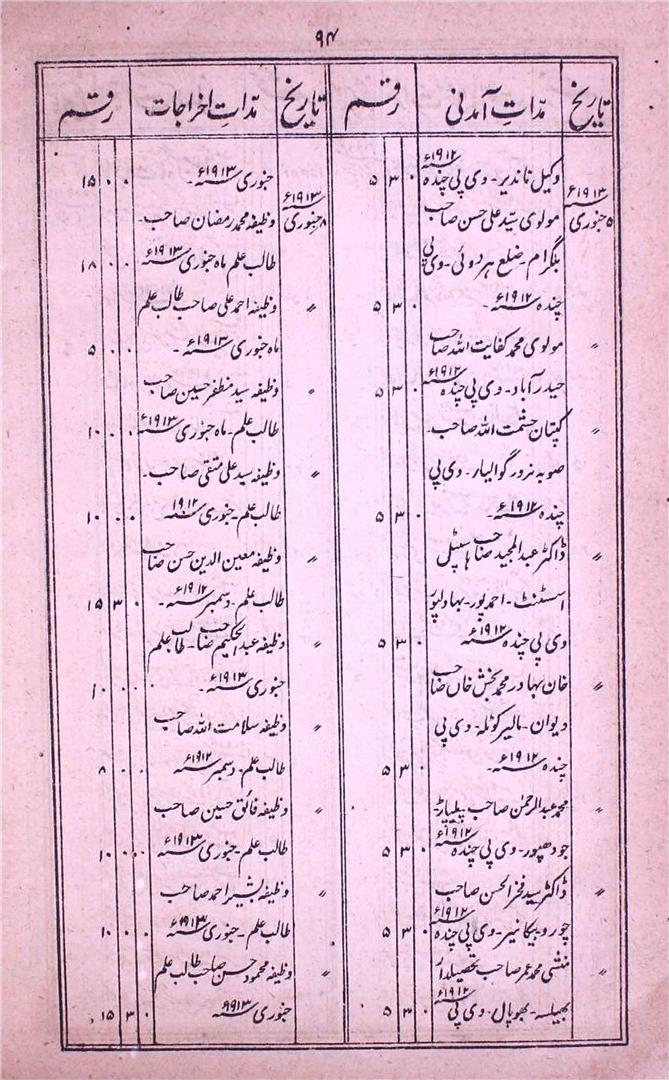 ۹۴
تاریخ مدّاتِ آمدنی رقم تاریخ مدّاتِ اخراجات رقم
وکیل ناندیر۔ وی پی چندہ ۱۹۱۲ء ۰ ۳ ۵
۱۹۱۳ء ۵ جنوری مولوی سیّد علی حسن صاحب
بلگرام۔ ضلع ہردوئی۔ وی پی
چندہ ۱۹۱۲ء۔ ۰ ۳ ۵
〃 مولوی محمد کفایت اللہ صاحب
حیدرآباد۔ وی پی چندہ ۱۹۱۲ء ۰ ۳ ۵
〃 کپتان حشمت اللہ صاحب۔
صوبہ نرور گوالیار۔ وی پی
چندہ ۱۹۱۲ء۔ ۰ ۳ ۵
〃 ڈاکٹر عبدالمجید صاحب ہاسپٹل
اسسٹنٹ۔ احمدپور۔ بہاولپور
وی پی چندہ ۱۹۱۲ء ۰ ۳ ۵
〃 خان بہادر محمد بخش خاں صاحب
دیوان۔ مالیرکوٹلہ۔ وی پی
چندہ ۱۹۱۲ء۔ ۰ ۳ ۵
〃 محمد عبدالرحمٰن صاحب
جودھپور۔ وی پی چندہ ۱۹۱۲ء ۰ ۳ ۵
〃 ڈاکٹر سید فخرالحسن صاحب
چورو۔ بیکانیر۔ وی پی چندہ ۱۹۱۲ء ۰ ۳ ۵
〃 منشی محمد عمر صاحب تحصیلدار
بھیلسہ۔ بھوپال۔ وی پی ۱۹۱۲ء ۰ ۳ ۵
جنوری ۱۹۱۳ء۔ ۰ ۰ ۱۵
۱۹۱۳ء ۸ جنوری وظیفہ محمد رمضان صاحب۔
طالب علم ماہ جنوری ۱۹۱۳ء ۰ ۰ ۱۸
〃 وظیفہ احمد علی صاحب طالب علم
ماہ جنوری ۱۹۱۳ء۔ ۰ ۰ ۵
〃 وظیفہ سید مظفر حسین صاحب
طالب علم۔ ماہ جنوری ۱۹۱۳ء ۰ ۰ ۱۰
〃 وظیفہ سید علی متقی صاحب۔
طالب علم۔ جنوری ۱۹۱۲ ۰ ۰ ۱۰
〃 وظیفہ معین الدین حسن صاحب
طالب علم۔ دسمبر ۱۹۱۲ء۔ ۰ ۳ ۱۵
〃 وظیفہ عبدالحکیم صاحب۔ طالب علم
جنوری ۱۹۱۳ء۔ ۰ ۰ ۱۰
〃 وظیفہ سلامت اللہ صاحب
طالب علم۔ دسمبر ۱۹۱۲ء ۰ ۰ ۸
〃 وظیفہ فائق حسین صاحب
طالب علم۔ جنوری ۱۹۱۳ء ۰ ۰ ۱۰
〃 وظیفہ بشیر احمد صاحب
طالب علم۔ جنوری ۱۹۱۳ء ۰ ۰ ۱۰
〃 وظیفہ محمود حسن صاحب طالب علم
جنوری ۱۹۱۳ء ۰ ۳ ۱۵